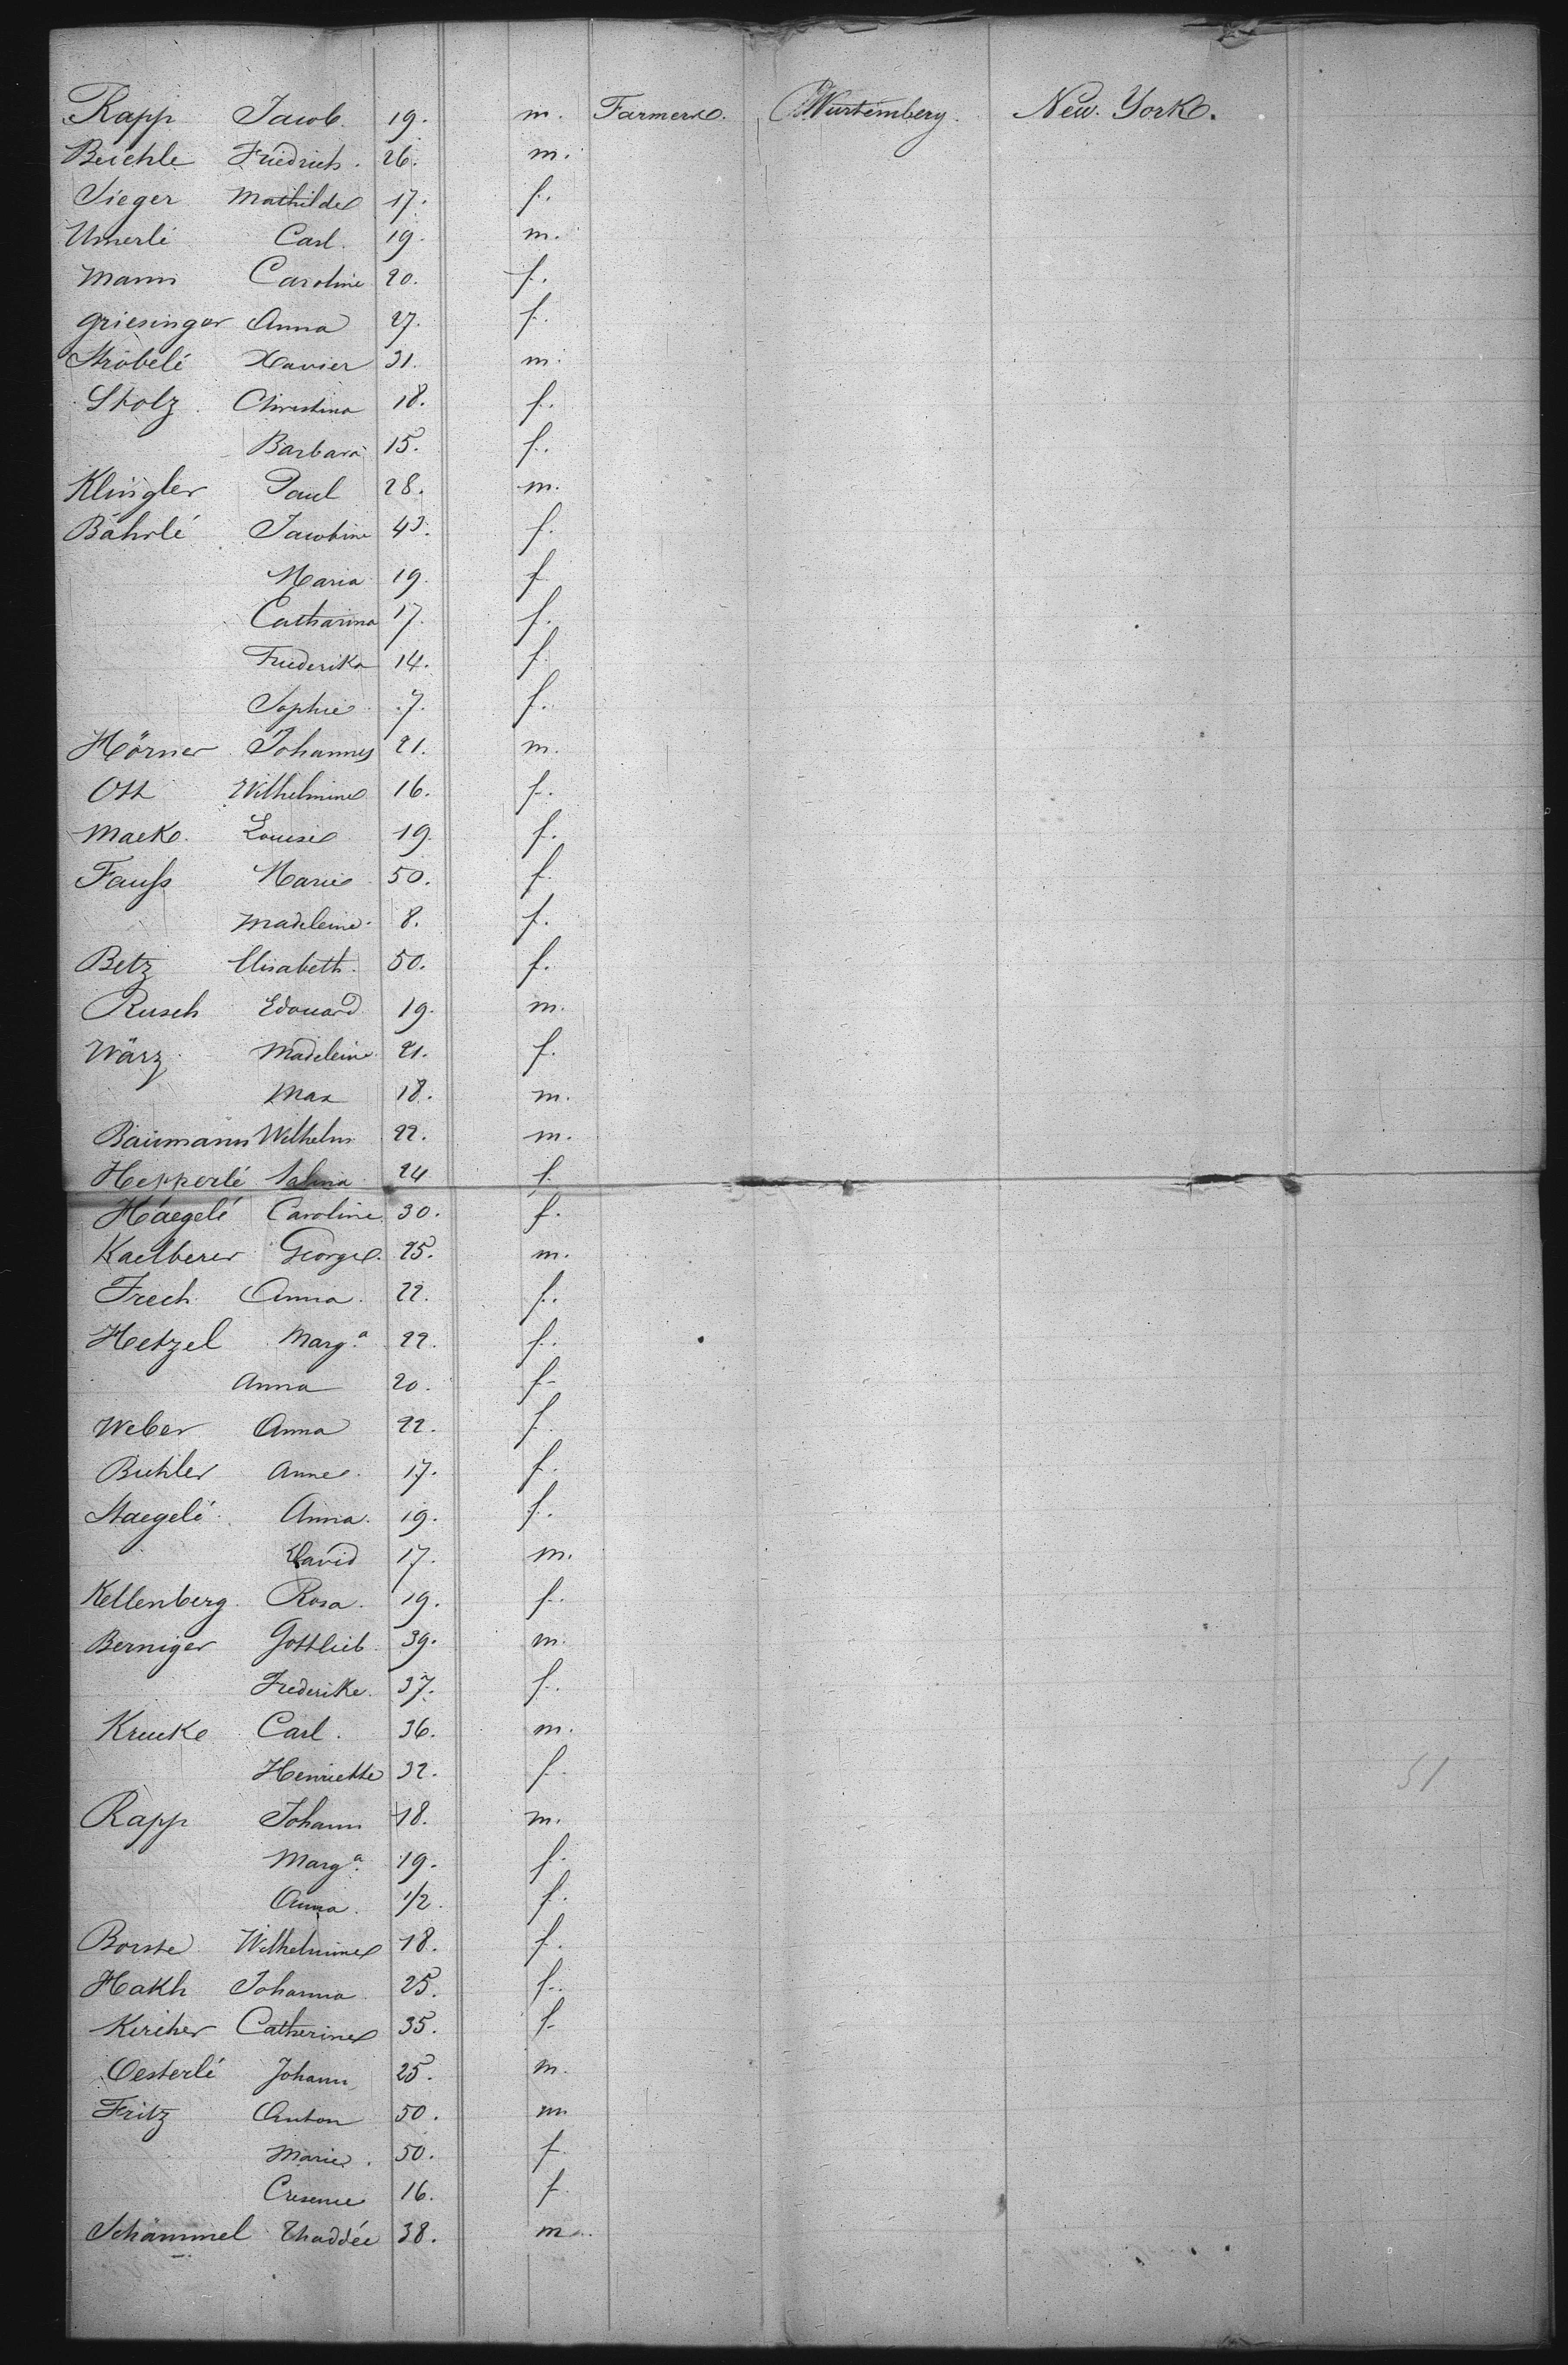 Rapp Jacob. 19. m. Farmers. Wurtemberg. New. York.
Beichle Friedrich. 26. m.
Sieger Mathilde 17. f.
Carl. 19. m.
Mann Caroline 20. f.
Griesinger Anna 27. f.
Ströbelé Xavier 31. m.
Stolz Christina 18. f.
Barbara 15. f.
Klingler Paul 28. m.
Bährlé Jacobine 43. f.
Maria 19. f.
Catharina 17. f.
Friederika 14. f.
Sophie 7. f.
Hörner Johannes 21. m.
Ott Wilhelmine 16. f.
Mack Louise 19. f.
Fauss Marie 50. f.
Madeleine. 8. f.
Betz Elisabeth. 50. f.
Rusch Edouard. 19. m.
Würz Madeleine 21. f.
Max 18. m.
Baumann Wilhelm 22. m.
Hepperlé Salina 24 f.
Häegelé Caroline 30. f.
Kaelberer George. 25. m.
Frech Anna. 22. f.
Hetzel Marg.a 22. f.
Anna 20. f.
Weber Anna 22. f.
Buhler Anne. 17. f.
Staegelé Anna. 19. f.
David 17. m.
Kellenberg Rosa. 19. f.
Berniger Gottlieb 39. m.
Frederike. 37. f.
Krucke Carl. 36. m.
Henriette 32. f.
51
Rapp Johann 18. m.
Marg.a 19. f.
Anna. 1/2. f.
Borste Wilhelmine 18. f.
Hakh Johanna 25. f.
Kircher Catherine 35. f.
Oesterlé Johann 25. m.
Fritz Anton 50. m
Marie. 50. f.
Cresence 16. f.
Schämmel Thaddée 38. m.